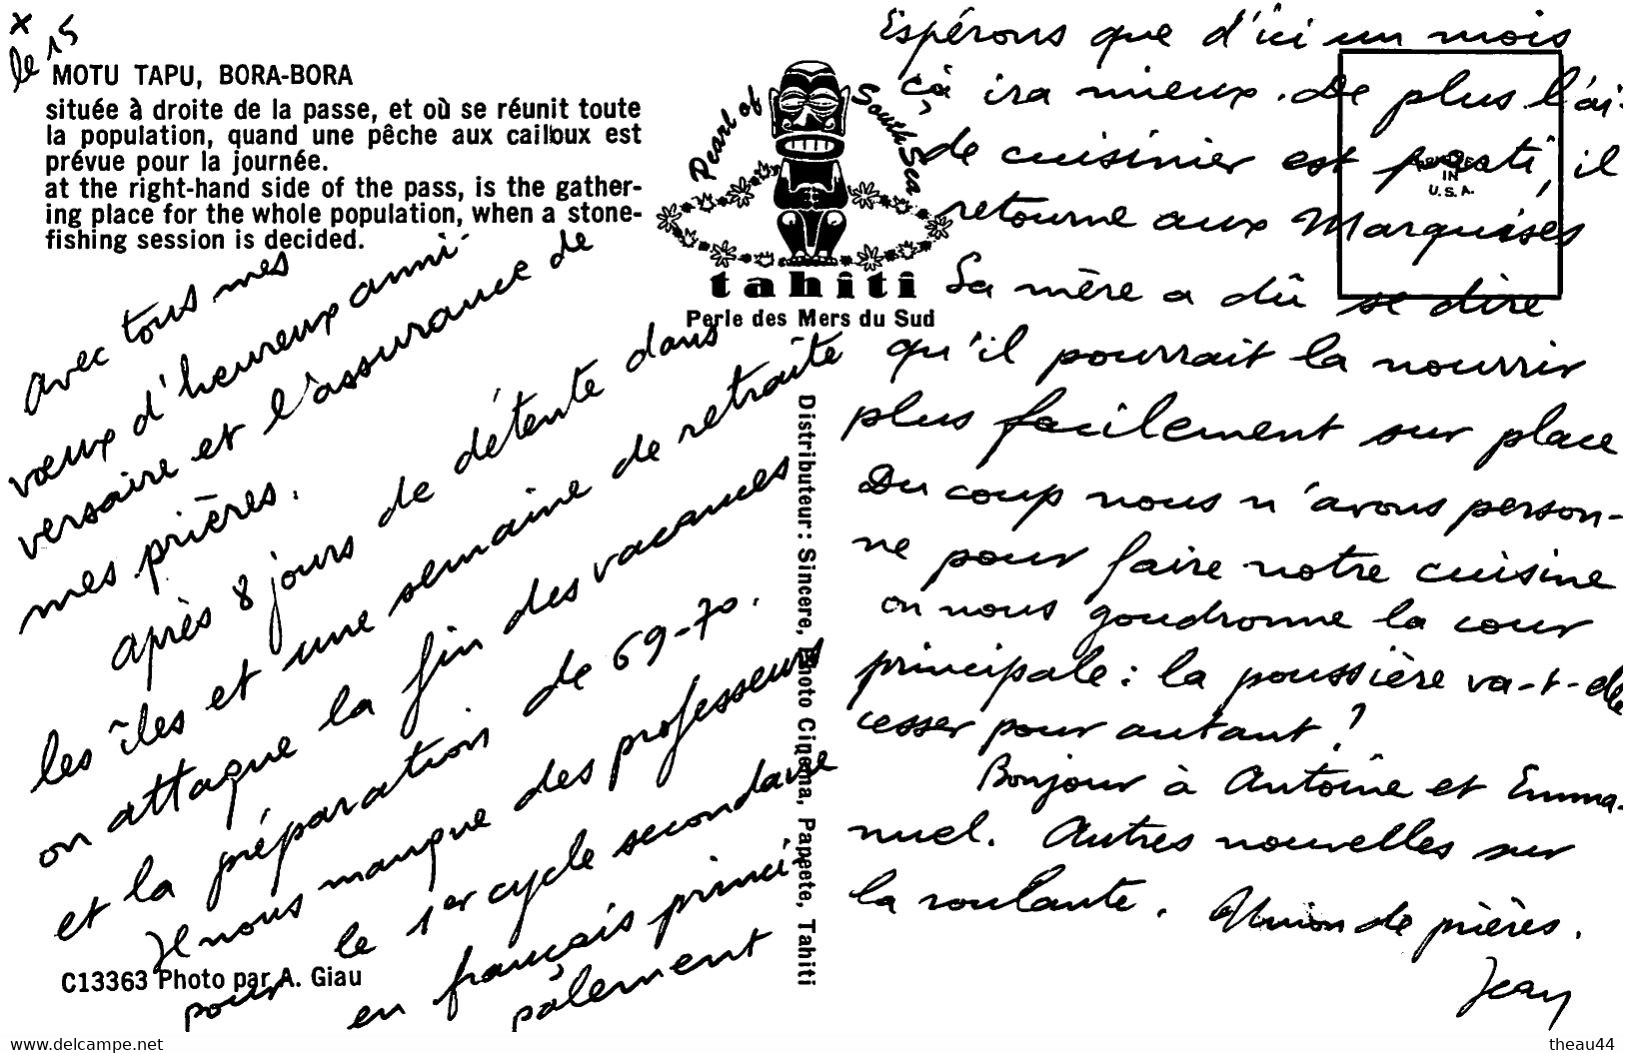 x
le 15
MOTU TAPU, BORA-BORA
située à droite de la passe, et où se réunit toute
la population, quand une pêche aux cailloux est
prévue pour la journée.
at the right-hand side of the pass, is the gather-
ing place for the whole population, when a stone-
fishing session is decided.
avec tous mes
vœux d'heureux anni-
versaire et l'assurance de
mes prières.
après 8 jours de détente dans
les îles et une semaine de retraite
on attaque la fin des vacances
et la préparation de 69-70.
Il nous manque des professeurs
pour le 1er cycle secondaire
en français princi-
palement
C13363 Photo par A. Giau
Pearl of South Sea
tahiti
Perle des Mers du Sud
Distributeur: Sincere, Photo Cinema, Papeete, Tahiti
IN
U.S.A.
Espérons que d'ici un mois
çà ira mieux. De plus l'ai-
de cuisinier est parti, il
retourne aux Marquises
Sa mère a dû se dire
qu'il pourrait la nourrir
plus facilement sur place
Du coup nous n'avons person-
ne pour faire notre cuisine
on nous goudronne la cour
principale : la poussière va-t-elle
cesser pour autant ?
Bonjour à Antoine et Emma-
nuel. Autres nouvelles sur
la roulante. Union de prières.
Jean
www.delcampe.net
theau44